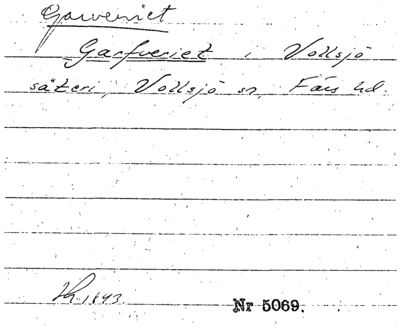 Garveriet
Garfveriet i Vollsjö
säteri, Vollsjö sn, Färs hd.
Kk. 1843
Nr 5069.